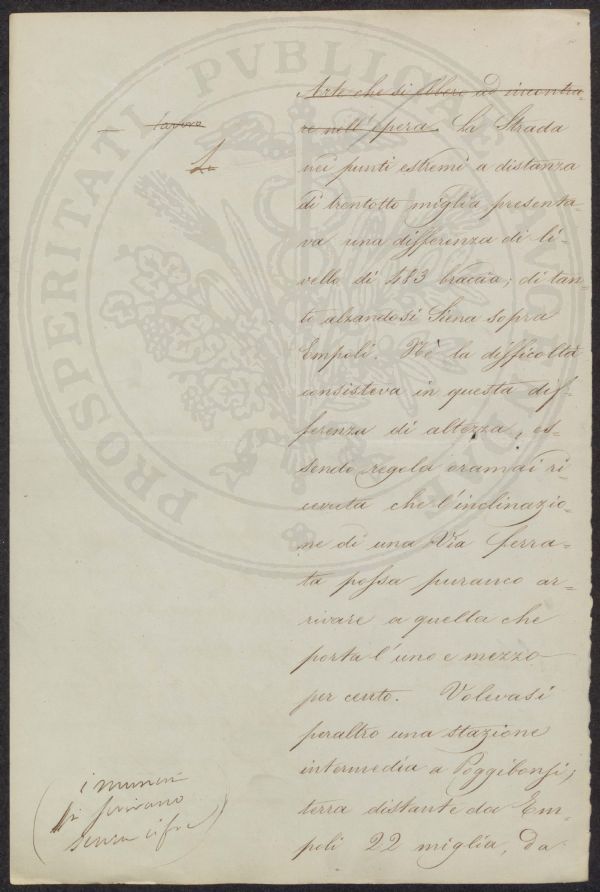 Arte che si ebbero ad incontra=
re nell'opera. La Strada
nei punti estremi a distanza
di trentotto miglia presenta=
va una differenza di li=
vello di 483 braccia; di tan=
to alzandosi Siena sopra
Empoli. Nè la difficoltà
consisteva in questa dif=
ferenza di altezza, es=
sendo regola oramai ri=
cevuta che l'inclinazio=
ne di una Via ferra=
ta possa puranco ar=
rivare a quella che
porta l'uno e mezzo
per cento. Volevasi
peraltro una stazione
intermedia a Poggibonsi,
terra distante da Em=
poli 22 miglia, da
– lavoro
L
i numeri
si scrivano
senza cifre
PROSPERITATI PVBLICAE